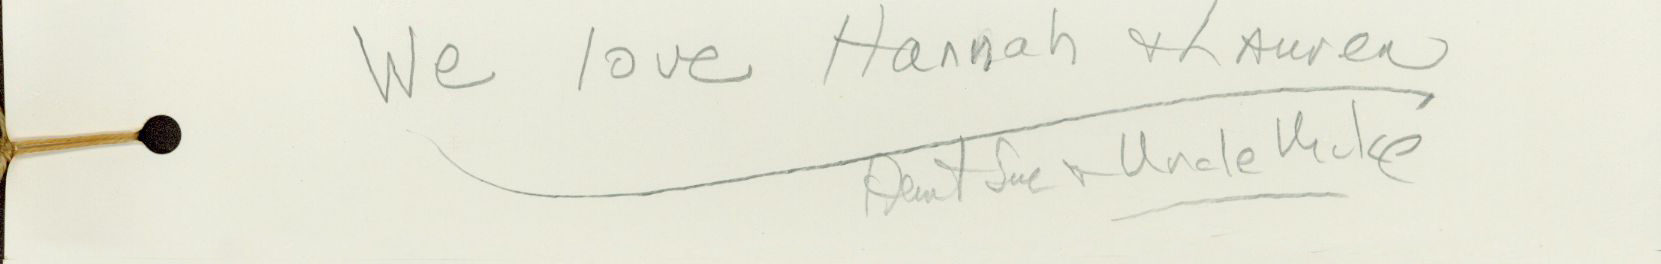 We love Hannah & Lauren
Aunt Sue & Uncle Mike